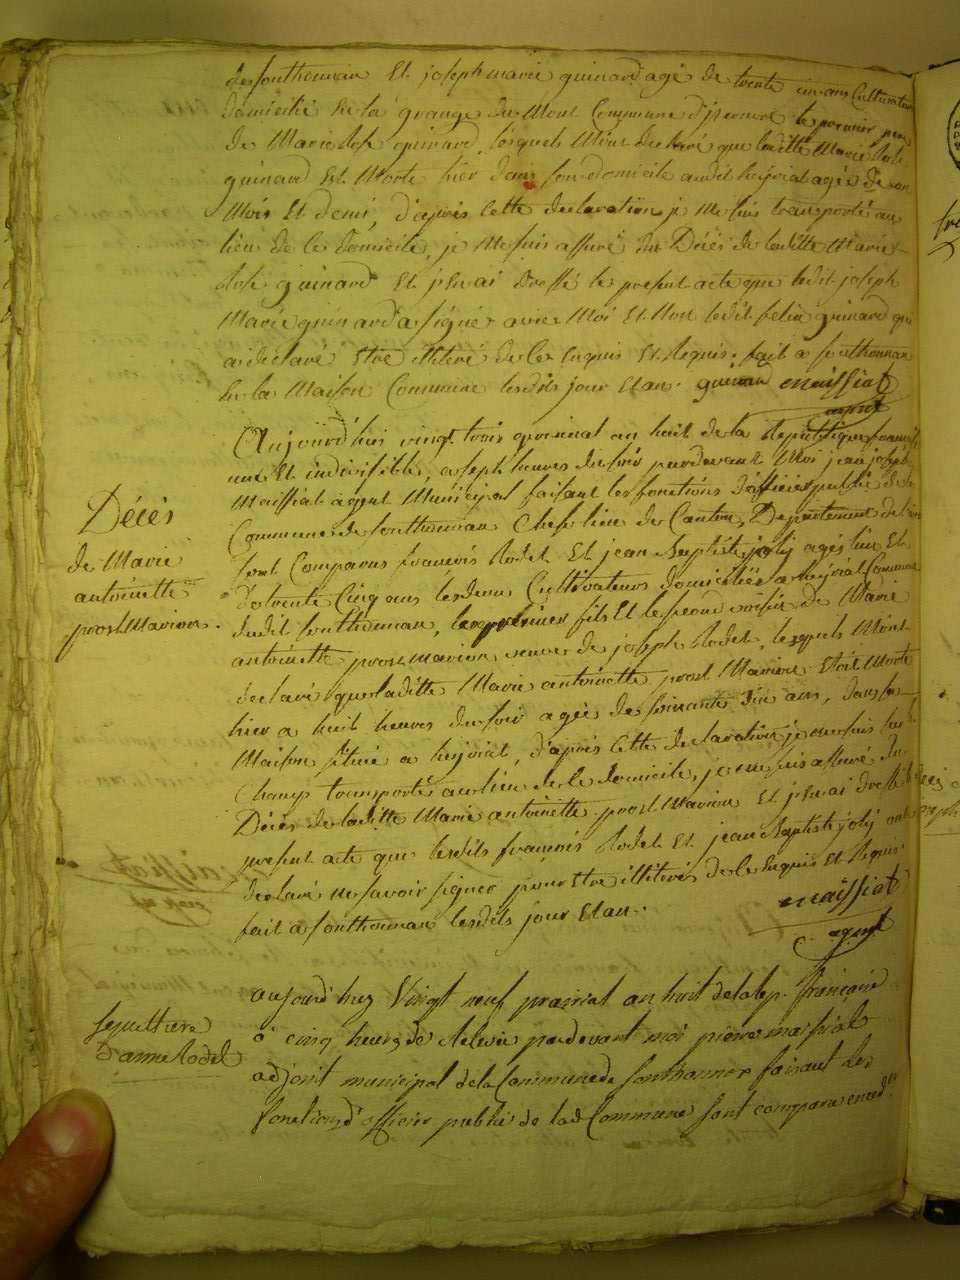 de Sonthonnax Et joseph marie guinard agé de trente cinq ans Cultivateur
domicilié de la grange du Mont Commune d'izenave le premier pere
de Marie Rose guinard, lesquels M'ont declaré que laditte Marie Rose
guinard Est Morte hier dans son domicile audit heyriat agée de un
Mois Et demi, d'après Cette declaration je Me suis transporté au
lieu de Ce domicile, je Me suis assuré du Décès de laditte Marie
Rose guinard Et j'En ai dressé le present acte que ledit joseph
Marie guinard a signé avec Moi Et Non ledit felix guinard qui
a déclaré Etre illitéré de Ce Enquis Et Requis. fait a Sonthonnax
En la Maison Commune lesdits jour Et an. guinard Maissiat
agent
Décès
de Marie
antoinette
prost Marion.
Aujourd'hui vingt trois prairial an huit de la Republique francaise
une Et indivisible, a sept heures du soir pardevant Moi jean joseph
Maissiat agent Municipal faisant les fonctions d'officier public de la
Commune de Sonthonnax Chef lieu de Canton, Departement de l'ain
sont Comparus francois Rodet Et jean Baptiste joly agés l'un Et
de trente Cinq ans les deux Cultivateurs domiciliés a heyriat Commune
dudit Sonthonnax, le premier fils Et le second voisin de Marie
antoinette prost Marion veuve de joseph Rodet, lesquels M'ont
declaré que laditte Marie antoinette prost Marion Etoit Morte
hier a huit heures du soir agée de soixante dix ans, dans sa
Maison située a heyriat, d'après Cette declaration je me suis sur le
Champ transporté au lieu de Ce domicile, je me suis assuré du
Décès de laditte Marie antoinette prost Marion Et j'En ai dressé le
present acte que lesdits francois Rodet Et jean Baptiste joly ont
declaré ne savoir signer pour Etre illitérés de Ce Enquis Et Requis
fait a Sonthonnax lesdits jour Et an. Maissiat
agent
Sepulture
d'anne Rodet
aujourd'huy Vingt neuf prairial an huit de la rep. françoise
a cinq heures de relevée pardevant moi pierre maissiat
adjoint municipal de la Commune de Sonthonnax faisant les
fonctions d'officier public de lad Commune sont comparu